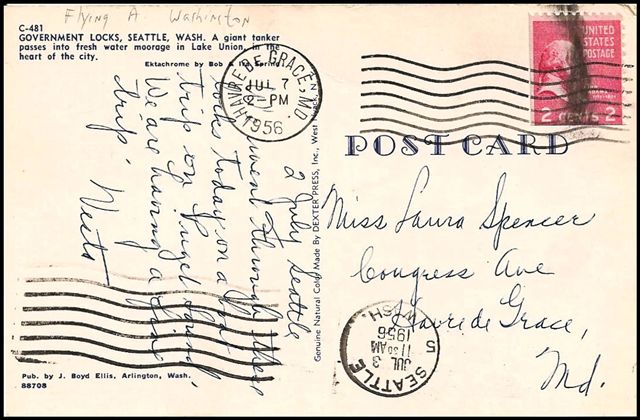 Flying A Washington
C-481
GOVERNMENT LOCKS, SEATTLE, WASH. A giant tanker
passes into fresh water moorage in Lake Union, in the
heart of the city.
Ektachrome by Bob & Ira Spring
HAVRE DE GRACE, MD.
JUL 7
2-PM
1956
UNITED
STATES
POSTAGE
2 CENTS 2
POST CARD
2 July Seattle
went through these
locks today on a boat
trip on Puget Sound,
We are having a fine
trip.
Genuine Natural Color Made By DEXTER PRESS, Inc., West Nyack, N.Y.
Miss Laura Spencer
Congress Ave
Havre de Grace,
Md.
SEATTLE 5
WASH
JUL 3
11 30 AM
1956
Pub. by J. Boyd Ellis, Arlington, Wash.
88708